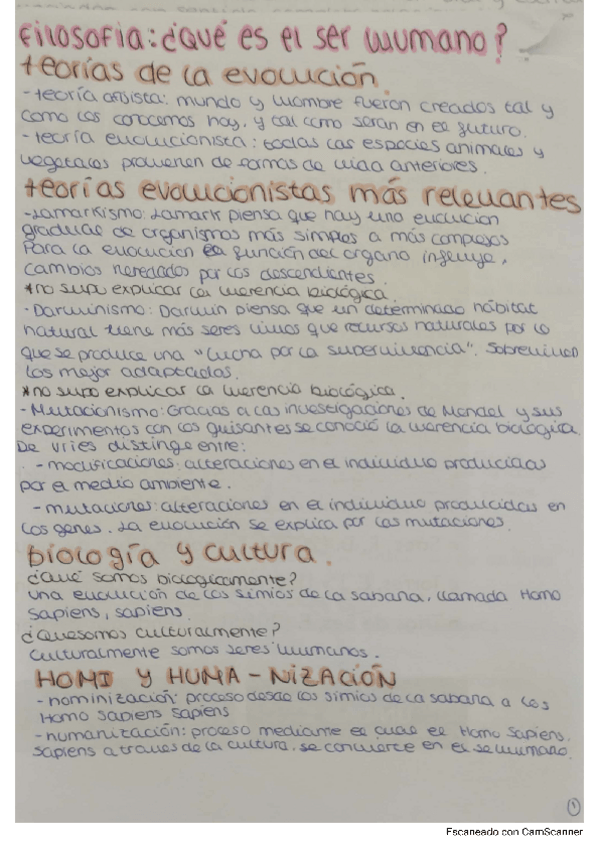 Filosofía: ¿Qué es el ser humano?
teorías de la evolución.
- teoría fijista: mundo y hombre fueron creados tal y
como los conocemos hoy, y tal como serán en el futuro.
- teoría evolucionista: todas las especies animales y
vegetales provienen de formas de vida anteriores.
teorías evolucionistas más relevantes
- Lamarkismo: Lamark piensa que hay una evolución
gradual de organismos más simples a más complejos
Para la evolución la función del organo influye,
cambios heredados por los descendientes.
*no supo explicar la herencia biológica.
- Darwinismo: Darwin piensa que un determinado hábitat
natural tiene más seres vivos que recursos naturales por lo
que se produce una "lucha por la supervivencia". Sobreviven
los mejor adaptados.
*no supo explicar la herencia biológica.
- Mutacionismo: Gracias a las investigaciones de Mendel y sus
experimentos con los guisantes se conoció la herencia biológica.
De Vries distinge entre:
- modificaciones: alteraciones en el individuo producidas
por el medio ambiente.
- mutaciones: alteraciones en el individuo producidas en
los genes. La evolución se explica por las mutaciones.
biología y cultura.
¿Qué somos biologicamente?
una evolución de los simios de la sabana, llamada Homo
sapiens, sapiens.
¿Que somos culturalmente?
culturalmente somos seres humanos.
HOMI Y HUMA - NIZACIÓN
- hominización: proceso desde los simios de la sabana a los
Homo sapiens sapiens
- humanización: proceso mediante el cual el Homo sapiens,
sapiens a traves de la cultura, se convierte en el se humano.
1
Escaneado con CamScanner